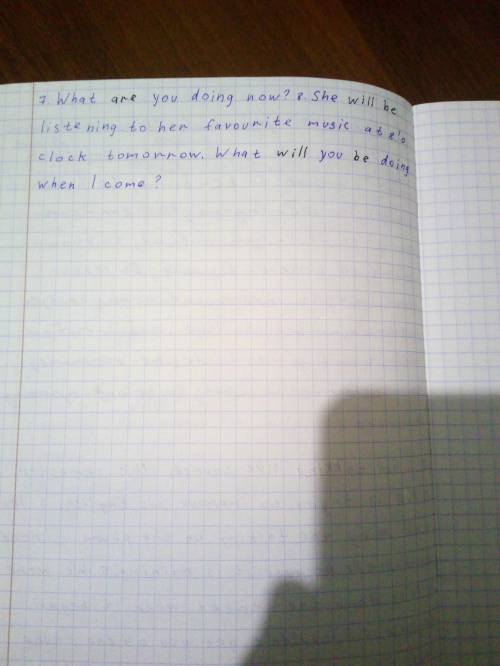 7. What are you doing now? 8. She will be
listening to her favourite music at 8'o
clock tomorrow. What will you be doing
when I come?